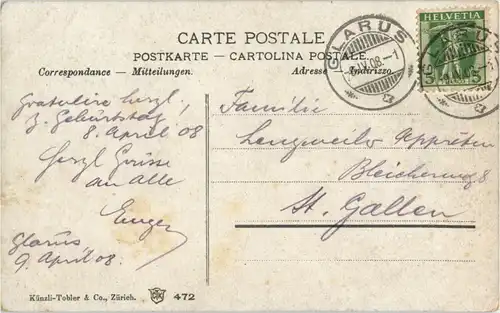 CARTE POSTALE
POSTKARTE — CARTOLINA POSTALE
Correspondance — Mitteilungen.
Adresse — Indirizzo.
GLARUS
HELVETIA
Gratuliere herzl.
z. Geburtstag
8. April 08
Herzl Grüsse
an Alle
Eugen
Glarus
9. April 08.
Familie
Lengweiler
Bleicherweg 8
St. Gallen
Künzli-Tobler & Co., Zürich.
472